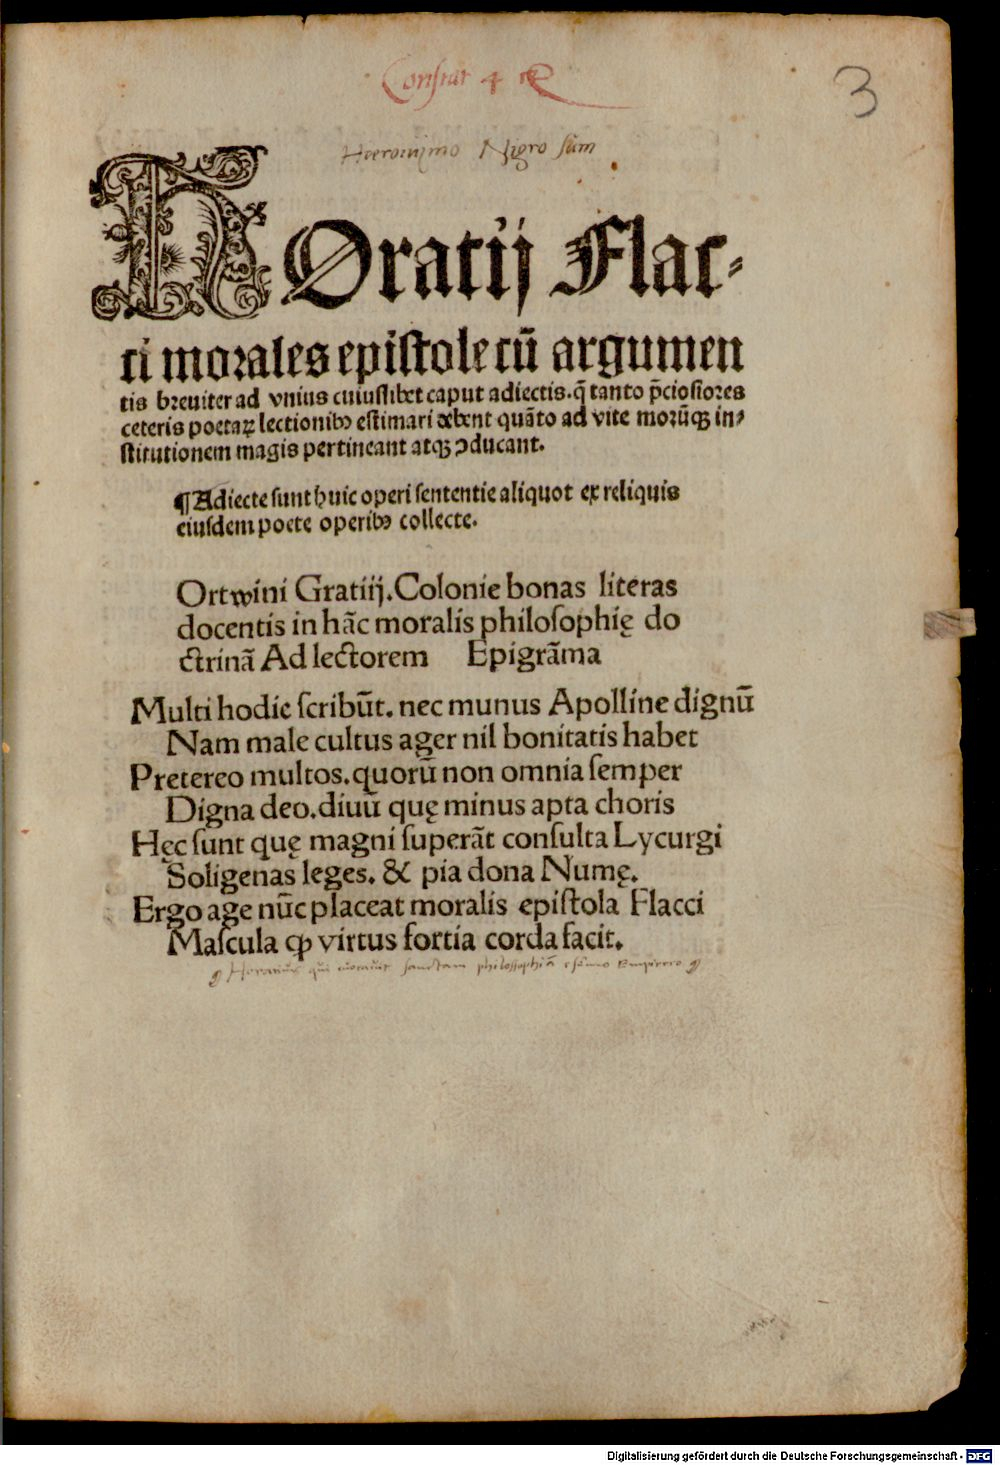 Constat 4
3
Hieronymo Nigro sum
HOratij Flac⸗
ci morales epistole cū argumen
tis breuiter ad vnius cuiuslibet caput adiectis. q̄ tanto p̄ciosiores
ceteris poetaꝝ lectionibꝰ estimari debent quāto ad vite morūqꝫ in⸗
stitutionem magis pertineant atqꝫ ↄducant.
¶ Adiecte sunt huic operi sententie aliquot ex reliquis
eiusdem poete operibꝰ collecte.
Ortwini Gratiij. Colonie bonas literas
docentis in hāc moralis philosophię do
ctrinā Ad lectorem Epigrāma
Multi hodie scribūt. nec munus Apolline dignū
Nam male cultus ager nil bonitatis habet
Pretereo multos. quorū non omnia semper
Digna deo. diuū quę minus apta choris
Hęc sunt quę magni superāt consulta Lycurgi
Soligenas leges. & pia dona Numę.
Ergo age nūc placeat moralis epistola Flacci
Mascula ꝙ virtus fortia corda facit.
Horatius qui sanctam philosophiā
Digitalisierung gefördert durch die Deutsche Forschungsgemeinschaft - DFG